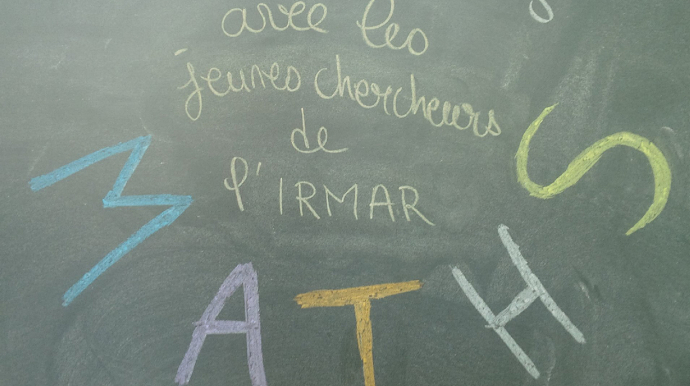 avec les
jeunes chercheurs
de
l'IRMAR
MATHS